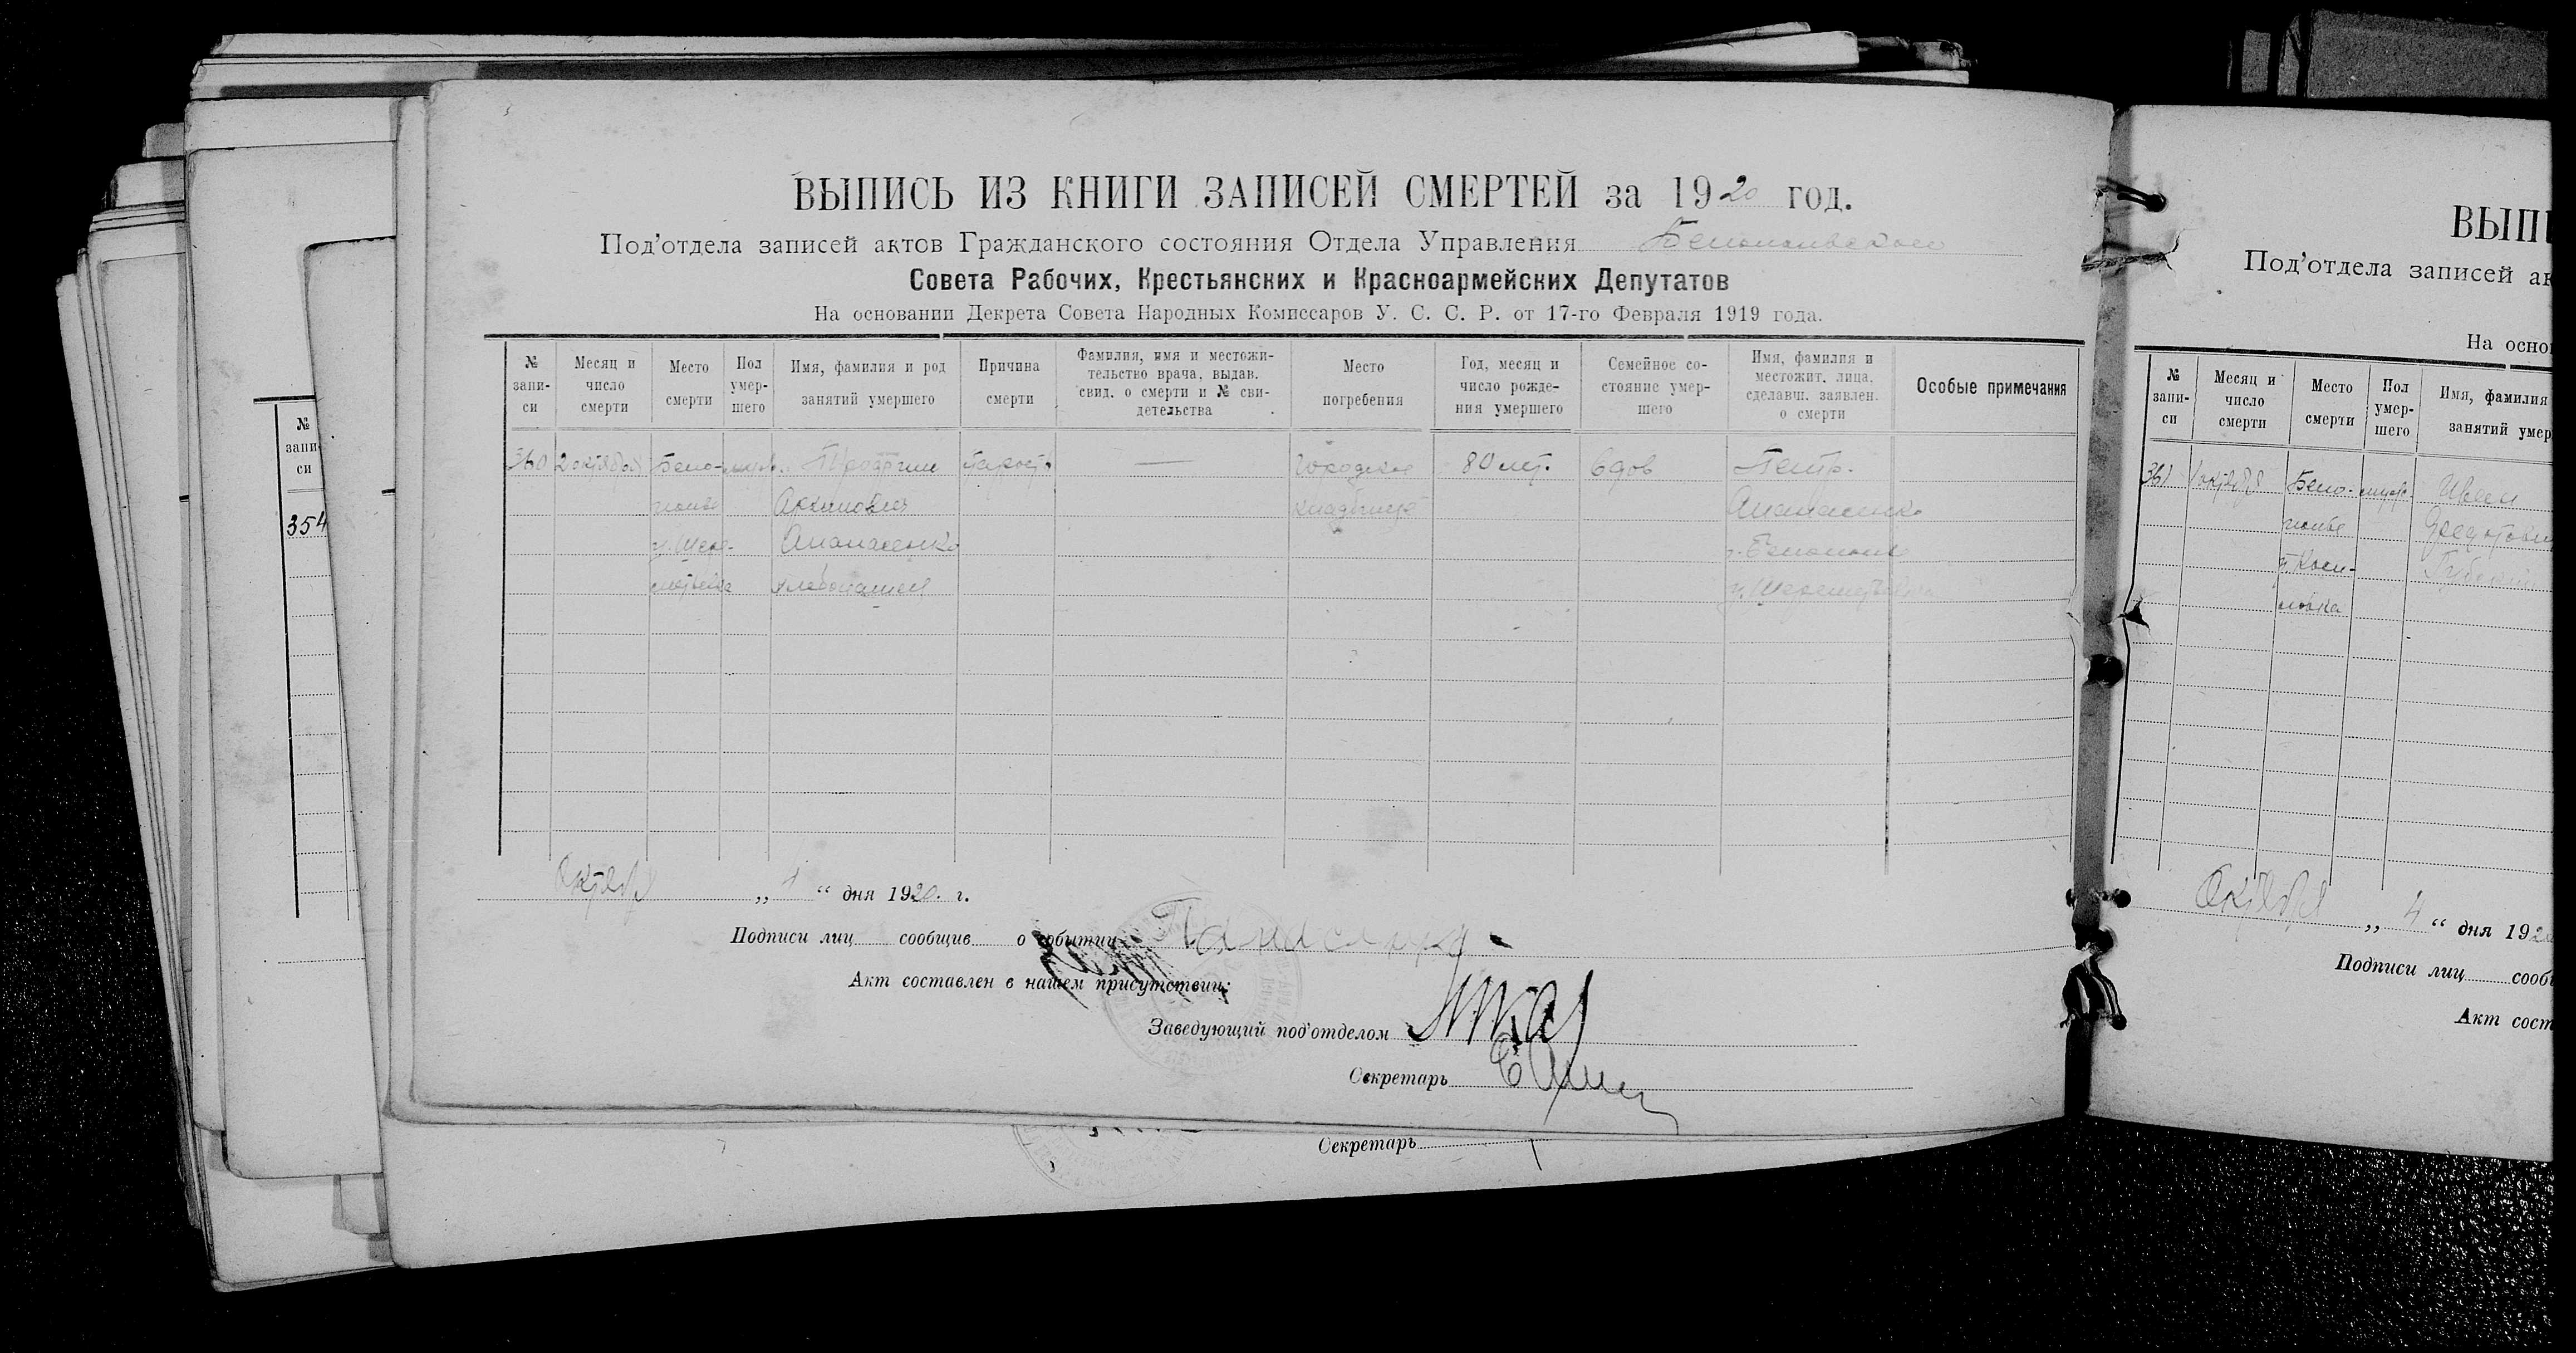 ВЫПИСЬ ИЗ КНИГИ ЗАПИСЕЙ СМЕРТЕЙ за 1920 год.
Под'отдела записей актов Гражданского состояния Отдела Управления Белопольского
Совета Рабочих, Крестьянских и Красноармейских Депутатов
На основании Декрета Совета Народных Комиссаров У. С. С. Р. от 17-го Февраля 1919 года.
№ запи- си
Месяц и число смерти
Место смерти
Пол умер- шего
Имя, фамилия и род занятий умершего
Причина смерти
Фамилия, имя и местожи- тельство врача, выдав. свид. о смерти и № сви- детельства
Место погребения
Год, месяц и число рожде- ния умершего
Семейное со- стояние умер- шего
Имя, фамилия и местожит. лица, сделавш. заявлен. о смерти
Особые примечания
360 2 октября Бело- мужс. старость — городское 80 лет. вдов Петр.
полье Акимович кладбище Апанасенко
Апанасенко г. Белополье
хлебопашец
Октября „ 4 “ дня 1920. г.
Подписи лиц сообщив о событии
Акт составлен в нашем присутствии:
Заведующий под'отделом
Секретарь
Секретарь
№
запи-
си
354
ВЫП
Под'отдела записей ак
На осно
№ запи- си
Месяц и число смерти
Место смерти
Пол умер- шего
Имя, фамилия занятий умер
361 1 октября Бело- мужс. Иван
полье Федотови
Октября „ 4 “ дня 192
Подписи лиц сооб
Акт сост